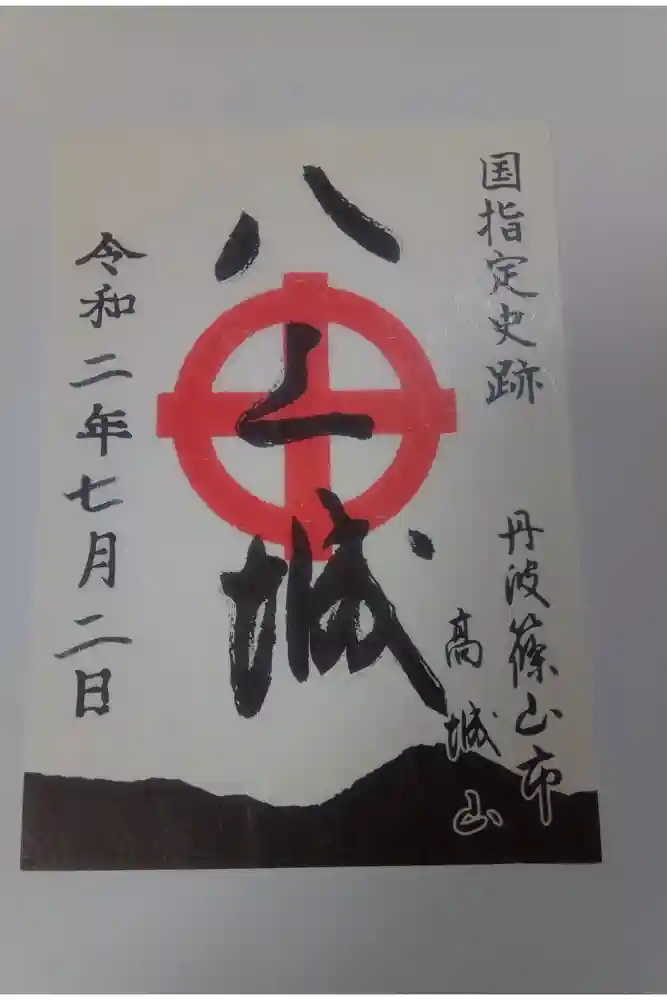 国指定史跡
丹波篠山市
高城山
八上城
令和二年七月二日